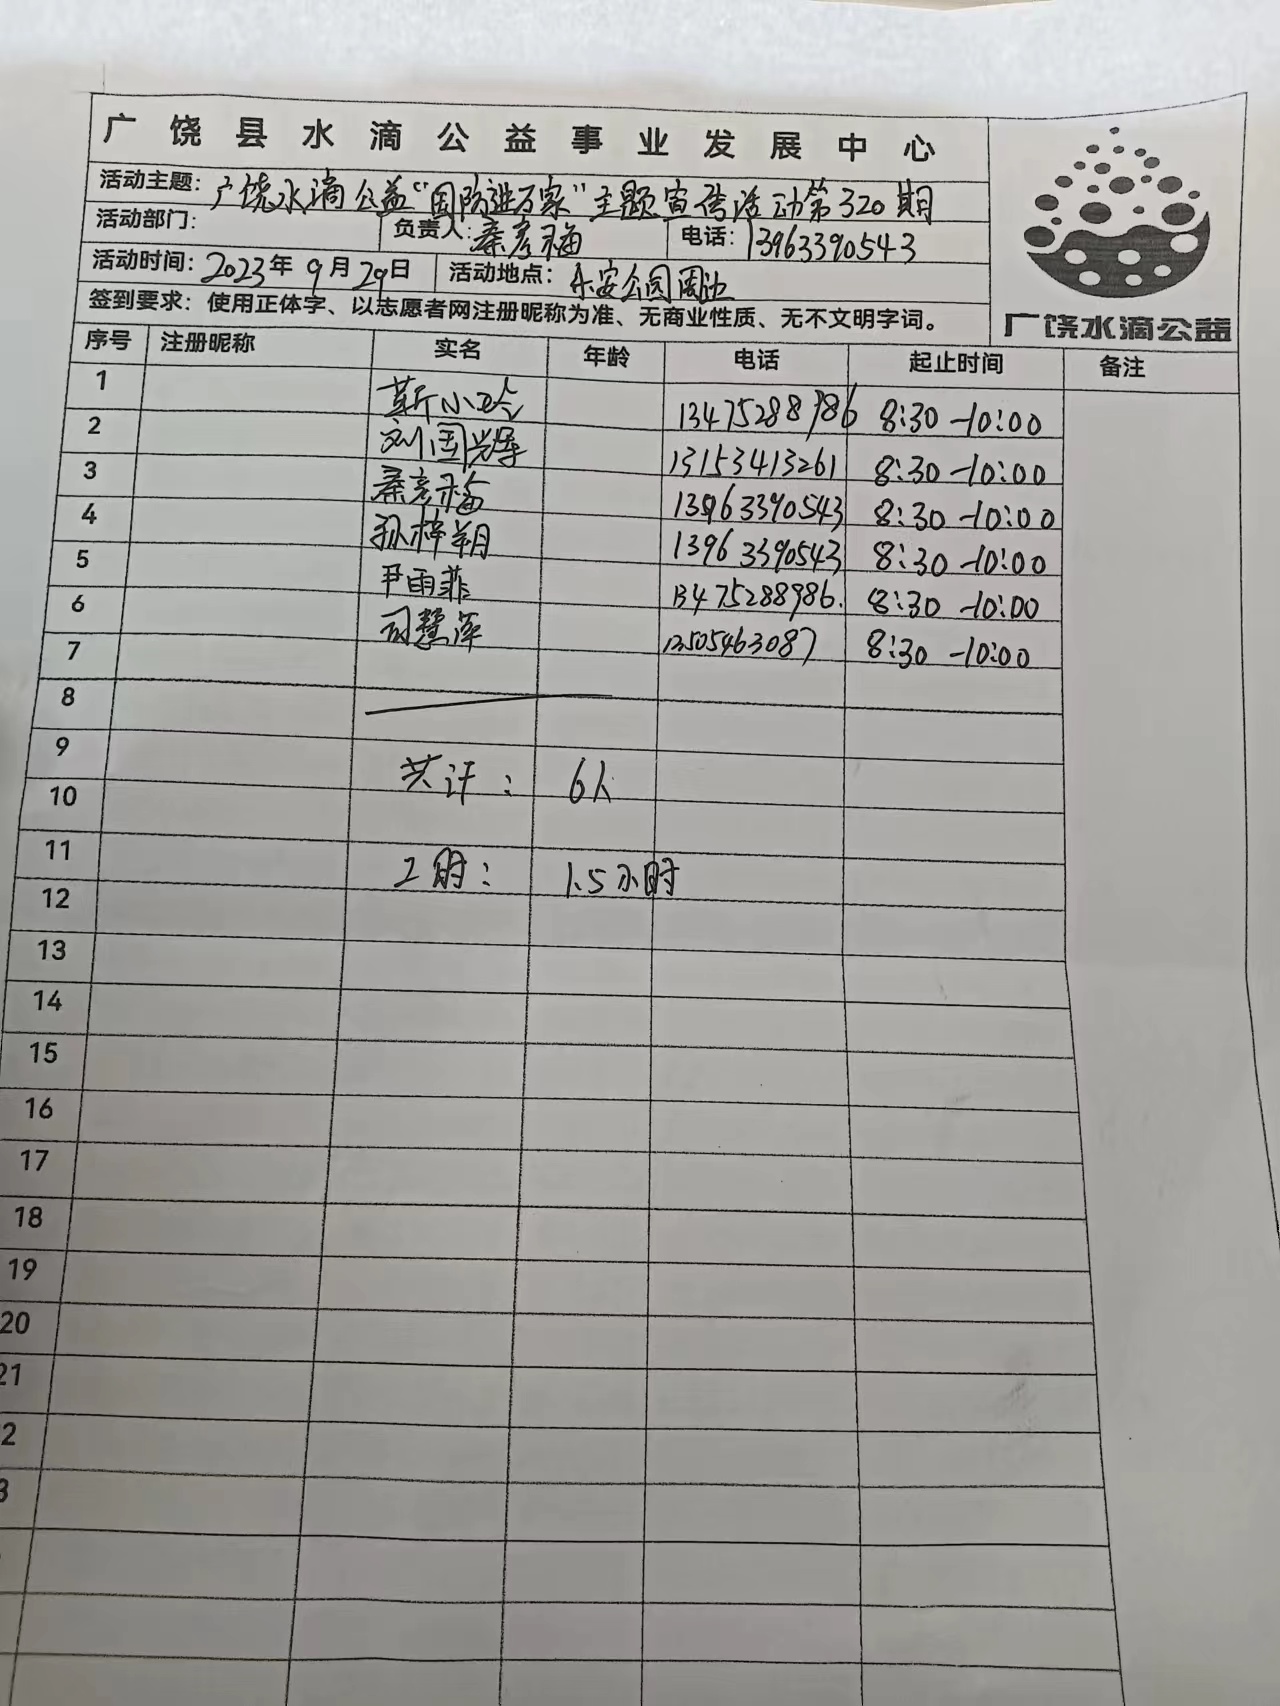 广饶县水滴公益事业发展中心
活动主题：广饶水滴公益“国防进万家”主题宣传活动第320期
活动部门： 负责人：秦彦福 电话：13963390543
活动时间：2023年9月29日 活动地点：乐安公园周边
签到要求：使用正体字、以志愿者网注册昵称为准、无商业性质、无不文明字词。
广饶水滴公益
序号 注册昵称 实名 年龄 电话 起止时间 备注
1 靳小玲 13475288986 8:30-10:00
2 刘国 13153413261 8:30-10:00
3 秦彦福 13963390543 8:30-10:00
4 孙梓朔 13963390543 8:30-10:00
5 尹雨菲 13475288986. 8:30-10:00
6 司慧萍 13505463087 8:30-10:00
7
8
9 共计： 6人
10
11 工时： 1.5小时
12
13
14
15
16
17
18
19
20
21
2
3